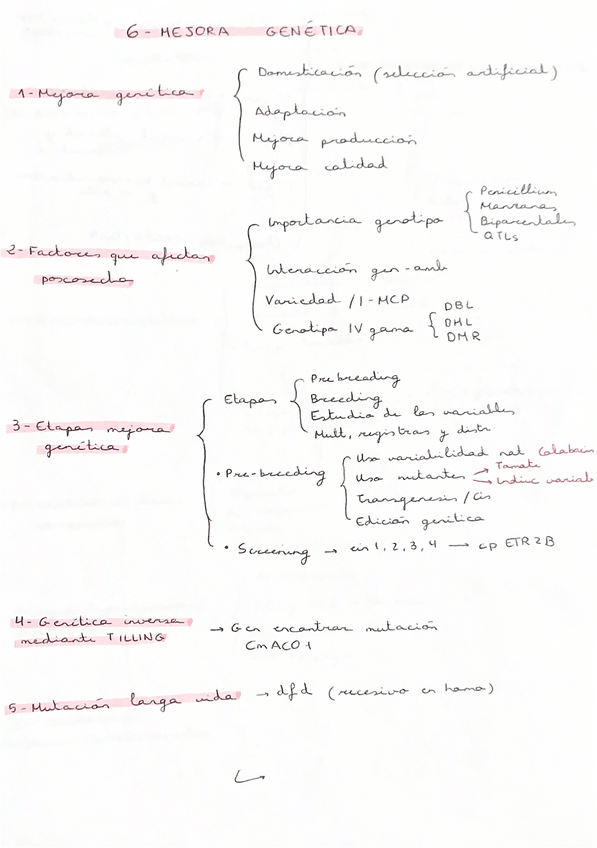 6 - MEJORA GENÉTICA
1- Mejora genética
Domesticación (selección artificial)
Adaptación
Mejora producción
Mejora calidad
2- Factores que afectan
poscosecha
Importancia genotipo
Penicillium
Manzanas
Biparentales
QTLs
Interacción gen - amb
Variedad / 1-MCP
Genotipo IV gama
DBL
DHL
DMR
3- Etapas mejora
genética
Etapas
Prebreading
Breeding
Estudio de las variables
Mult, registros y distr.
• Pre-breeding
Uso variabilidad nat Calabacín
Uso mutantes → Tomate
→ Induc variab
Transgenesis / Cis
Edición genética
• Screening → ein 1, 2, 3, 4 → cp ETR2B
4- Genética inversa
mediante TILLING
→ Gen encontrar mutación
CmACO1
5- Mutación larga vida → dfd (recesivo en homo)